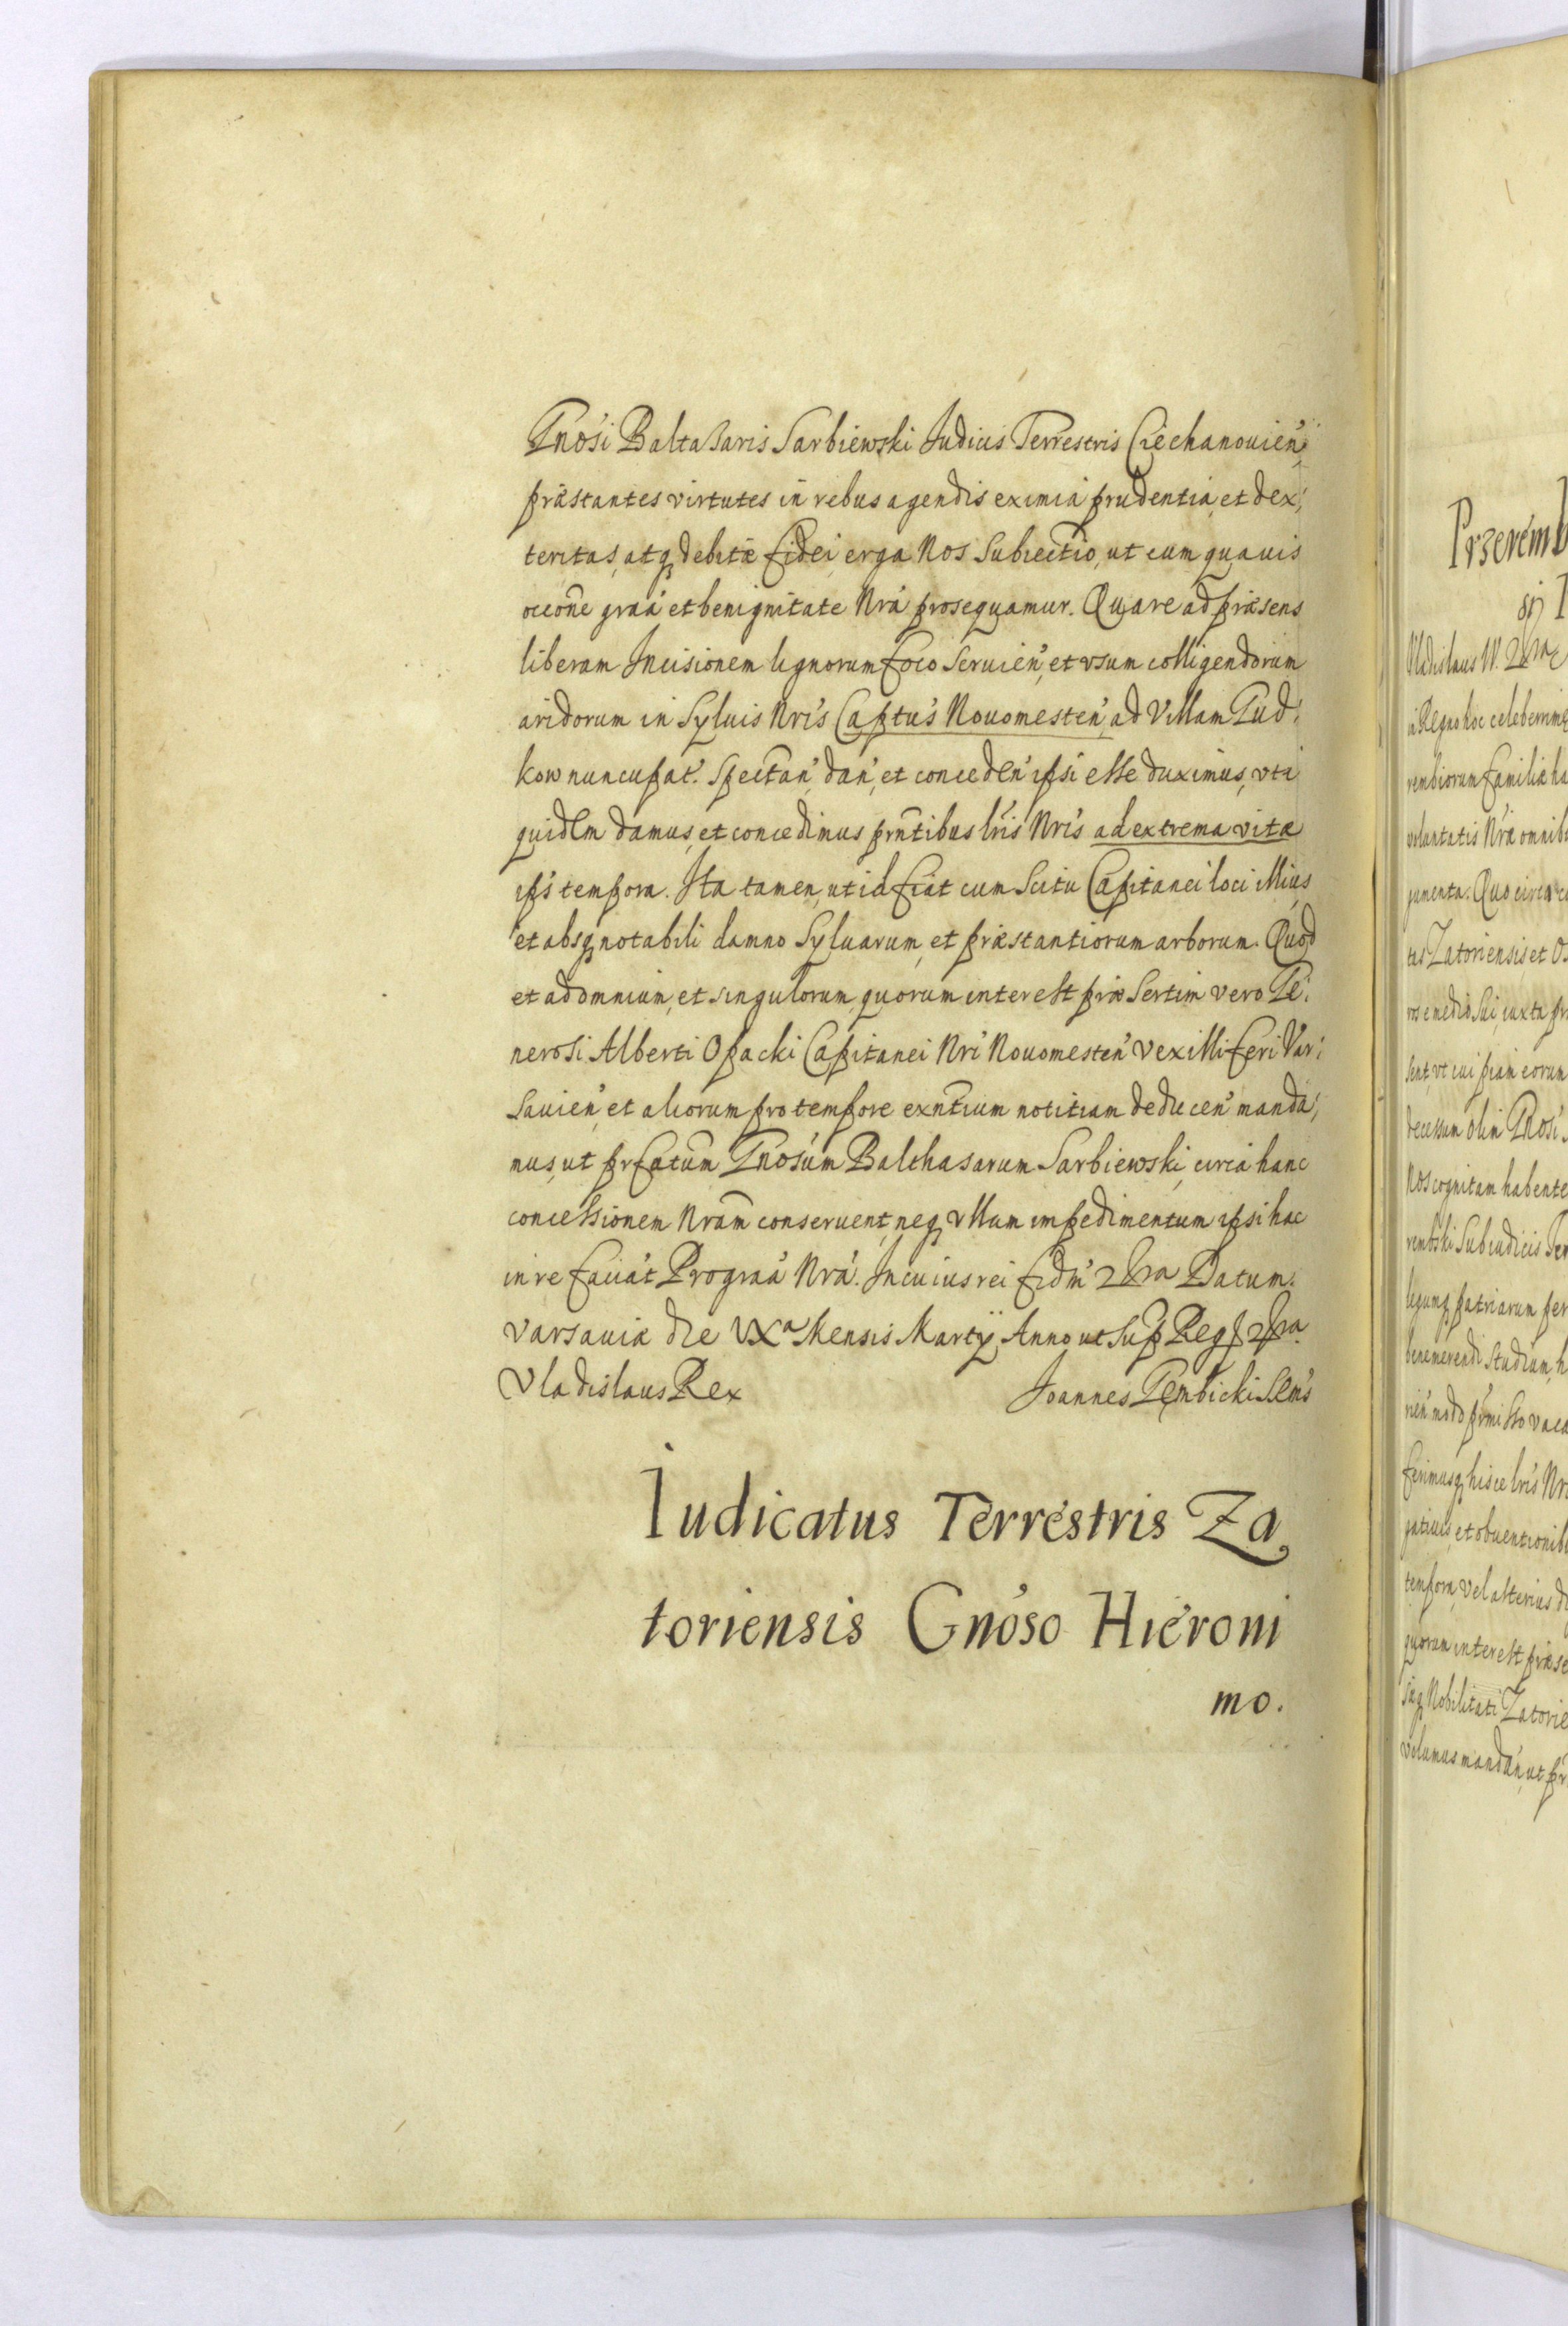 Gnosi Baltasaris Sarbiewski Judicis Terrestris Ciechanouień,
præstantes virtutes in rebus agendis eximia prudentia, et dex,
teritas, atq debitæ fidei erga Nos Subiectio, ut eum quauis
occoñe graá et benignitate Nrá prosequamur. Quare ad præsens
liberam Incisionem lignorum foco seruień, et vsum colligendorum
aridorum in Syluis Nris Captus Nouomesteń, ad Villam Gud,
kow nuncupat. Spectań, dań, et concedeń ipsi esse duximus, vti
quidem damus, et concedimus prñtibus lris Nris ad extrema vitæ
ips tempora. Ita tamen, ut id fiat cum Scitu Capitanei loci illius,
et absq notabili damno Syluarum, et præstantiorum arborum. Quod
et ad omnium, et singulorum, quorum interest præsertim vero Ge,
nerosi Alberti Opacki Capitanei Nri Nouomesteń Vexilliferi Var,
sauień, et aliorum pro tempore exñtium notitiam deduceń manda,
mus, ut prfatum Gnosum Balthasarum Sarbiewski, circa hanc
concessionem Nram conseruent, neq vllum impedimentum ipsi hac
in re faciát Pro graá Nrá. In cuius rei fidm Datum.
Varsauiæ die Mensis Martij Anno ut Sup Reg
Vladislaus Rex Joannes Gembicki
Iudicatus Terrestris Za,
toriensis Gnoso Hieroni
mo.
Przeremb
Vladislaus IV.
in Regno hoc celeberrimę
rembiorum familiæ ha
voluntatis Nræ omnib
jumenta. Quo circa
tus Zatoriensis et Os
ros e medio sui, iuxta pr
sent, vt cui piam eorum
decessum olim Gnosi
Nos cognitam habente
rembski Subiudicis Ter
legumq patriarum per
benemerendi studium, h
rień modo prmisso vaca
ferimusq hisce lris Nr
gatiuis, et obuentionib
tempora, vel alterius di
quorum interest præse
siq Nobilitati Zatorie
volumus mandań, ut pr